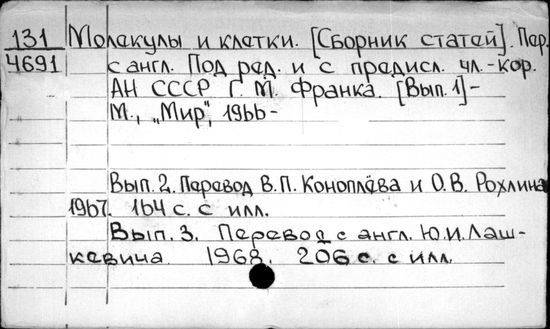 131 Молекулы и клетки. [Сборник статей]. Пер.
4691 с англ. Под ред. и с предисл. чл.-кор.
АН СССР Г. М. Франка. [Вып. 1]-
М., „Мир", 1966-
Вып. 2. Перевод В. П. Коноплёва и О. В. Рохлина
1967. 164 с. с илл.
Вып. 3. Перевод с англ. Ю. И. Лаш-
кевича. 1968. 206 с. с илл.